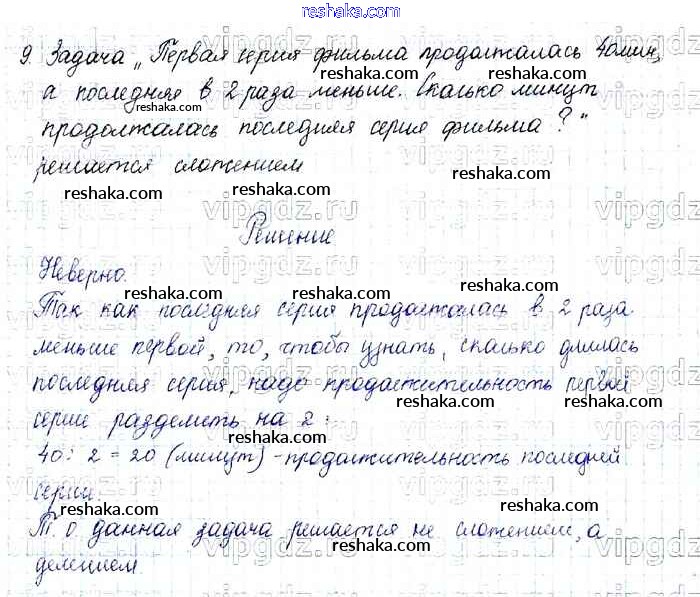 reshaka.com
9. Задача „Первая серия фильма продолжалась 40 мин,
а последняя в 2 раза меньше. Сколько минут
продолжалась последняя серия фильма?"
решается сложением
Решение
Неверно.
Так как последняя серия продолжалась в 2 раза
меньше первой, то, чтобы узнать, сколько длилась
последняя серия, надо продолжительность первой
серии разделить на 2:
40 : 2 = 20 (минут) - продолжительность последней
серии.
Т. о данная задача решается не сложением, а
делением